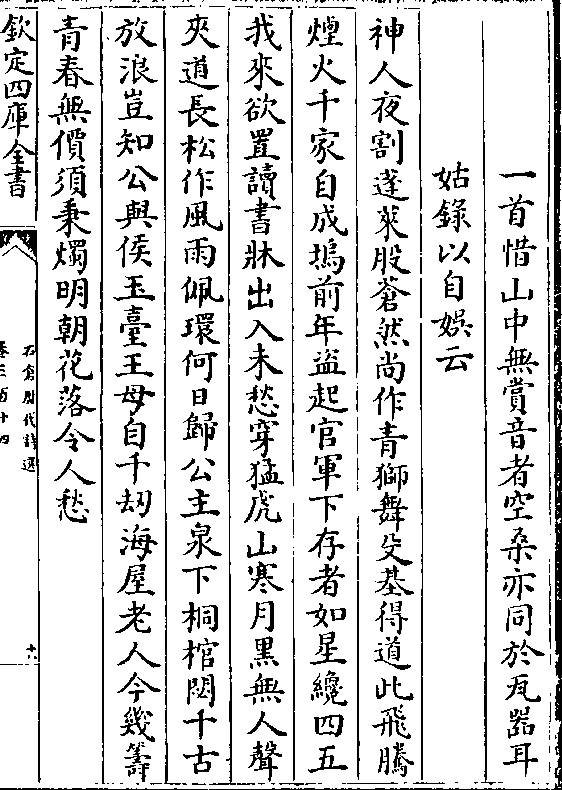 一首惜山中無賞音者空桑亦同於瓦器耳
姑錄以自娛云
神人夜割蓬萊股蒼然尚作青獅舞安基得道此飛騰
煙火千家自成塢前年盜起官軍下存者如星纔四五
我來欲置讀書牀出入未愁穿猛虎山寒月黑無人聲
夾道長松作風雨佩環何日歸公主泉下桐棺閟千古
放浪豈知公與侯玉臺王母自千刼海屋老人今幾籌
青春無價須秉燭明朝花落令人愁
欽定四庫全書
石倉歷代詩選
卷三百十四
十六